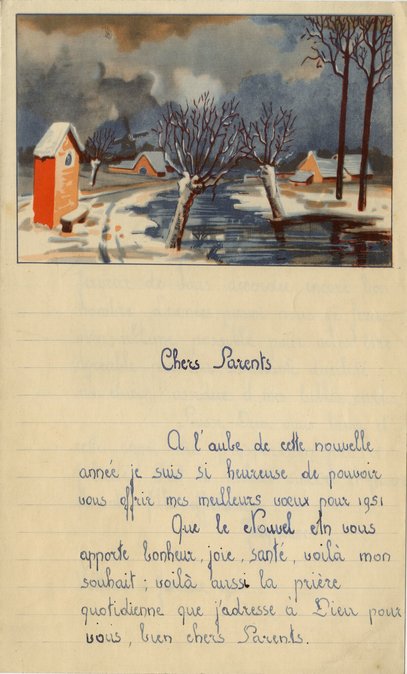 Chers Parents
A l'aube de cette nouvelle
année je suis si heureuse de pouvoir
vous offrir mes meilleurs vœux pour 1951
Que le Nouvel An vous
apporte bonheur, joie, santé, voilà mon
souhait ; voilà aussi la prière
quotidienne que j'adresse à Dieu pour
vous, bien chers Parents.